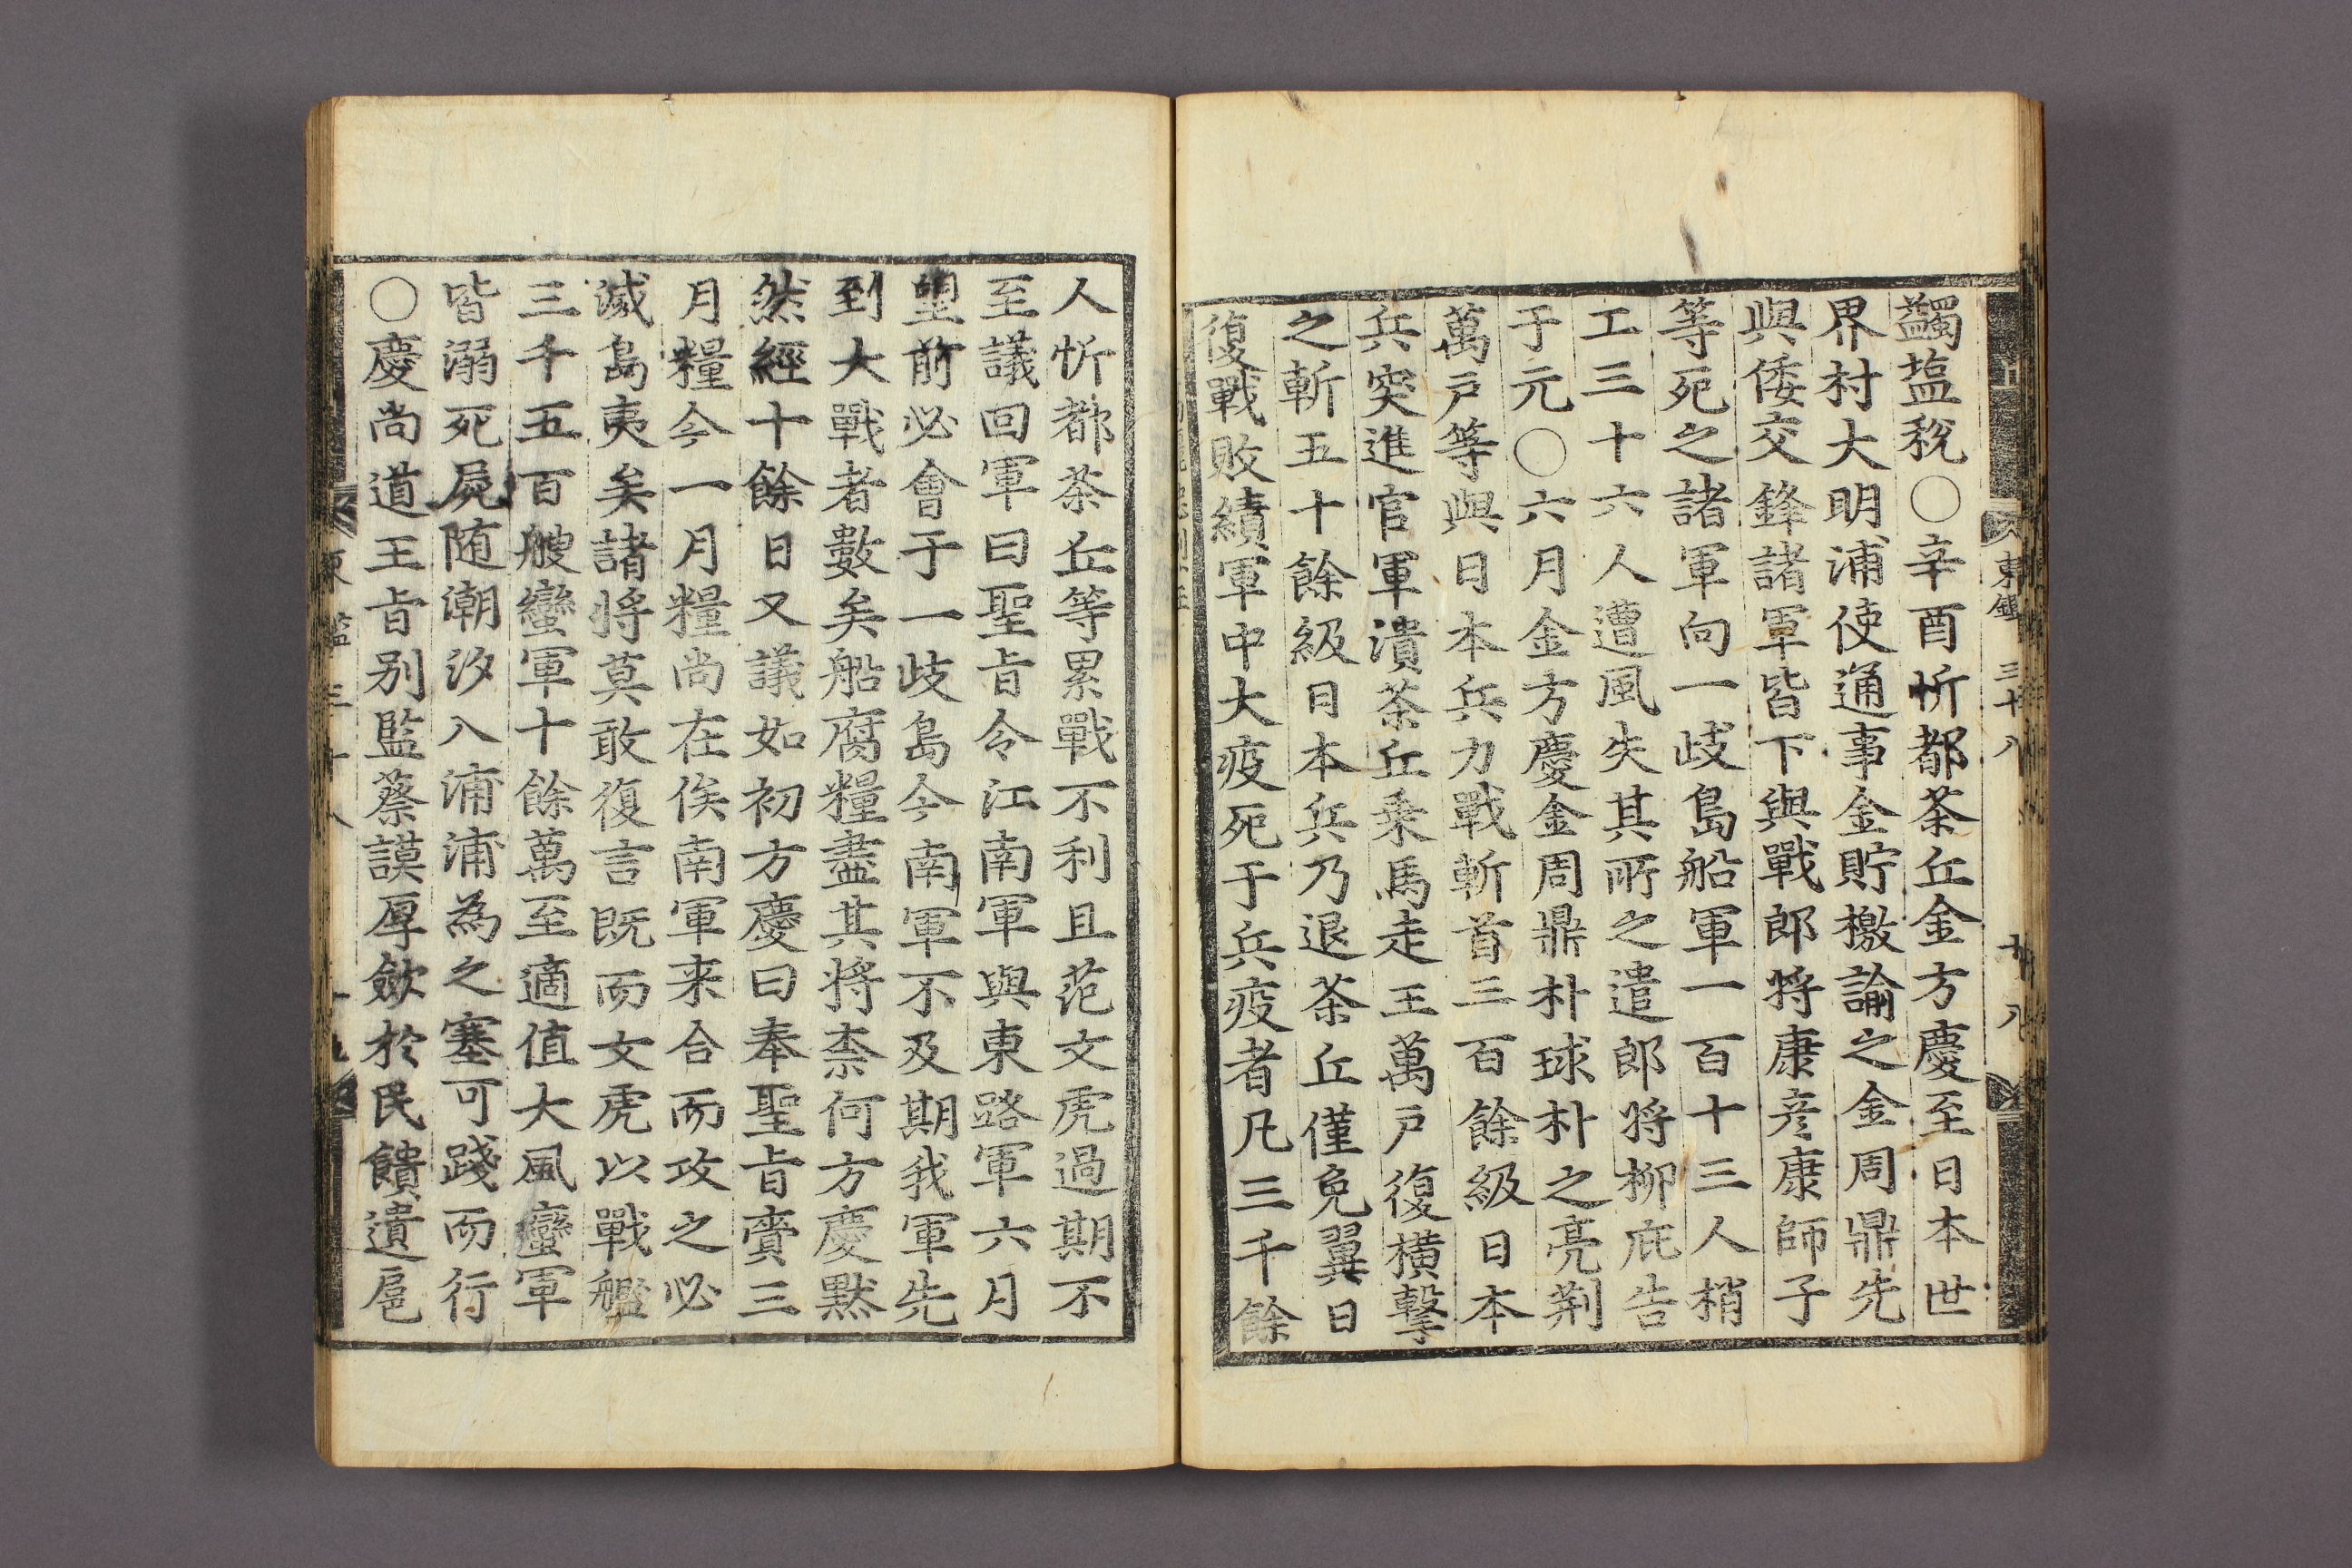 東鑑 三十八 十八
蠲塩稅○辛酉忻都茶丘金方慶至日本世
界村大明浦使通事金貯檄諭之金周鼎先
與倭交鋒諸軍皆下與戰郎将康彦康師子
等死之諸軍向一歧島船軍一百十三人梢
工三十六人遭風失其所之遣郎将柳庇告
于元○六月金方慶金周鼎朴球朴之亮荆
萬戶等與日本兵力戰斬首三百餘級日本
兵突進官軍潰茶丘乗馬走王萬戶復橫擊
之斬五十餘級日本兵乃退茶丘僅免翼日
復戰敗績軍中大疫死于兵疫者凡三千餘
人忻都茶丘等累戰不利且范文虎過期不
至議回軍曰聖旨令江南軍與東路軍六月
望前必會于一歧島今南軍不及期我軍先
到大戰者數矣船腐糧盡其將柰何方慶黙
然經十餘日又議如初方慶曰奉聖旨賫三
月糧今一月糧尚在俟南軍来合而攻之必
滅島夷矣諸将莫敢復言既而文虎以戰艦
三千五百艘蠻軍十餘萬至適值大風蠻軍
皆溺死屍随潮汐入浦浦為之塞可踐而行
○慶尚道王旨别監蔡謨厚斂於民饋遺扈
東鑑 三十八